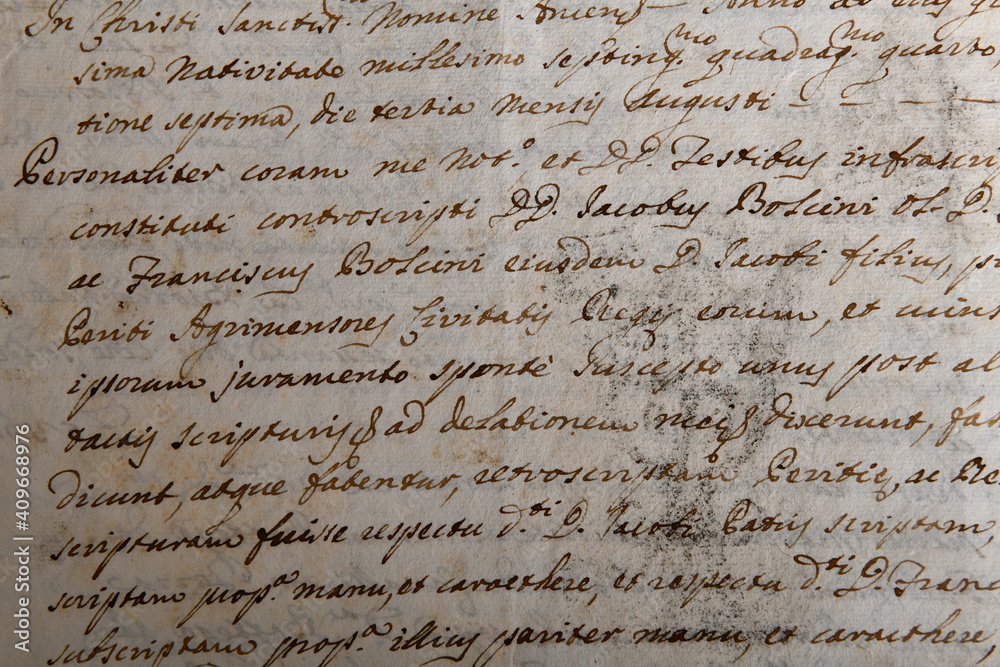 In Christi Sanctiss. Nomine Amen — Anno ab eius
sima Nativitate millesimo septing.mo quadrag.mo quarto,
tione septima, die tertia mensis Augusti — — —
Personaliter coram me Not.o et DD. Testibus infrascri
constituti controscripti DD. Jacobus Bolcini D.
ac Franciscus Bolcini eiusdem D. Jacobi filius,
Periti Agrimensores Civitatis Regij eorum, et
ipsorum juramento sponte suscepto unus post al
tactis scripturis ad delationem mei dixerunt, fat
dicunt, atque fatentur, retroscriptam Peritie, ac Re
scripturam fuisse respectu d.ti D. Jacobi Patris scriptam,
scriptam prop.a manu, et caracthere, et respectu d.ti D. Franc
subscriptam prop.a illius pariter manu, et caracthere,
Adobe Stock | #409668976